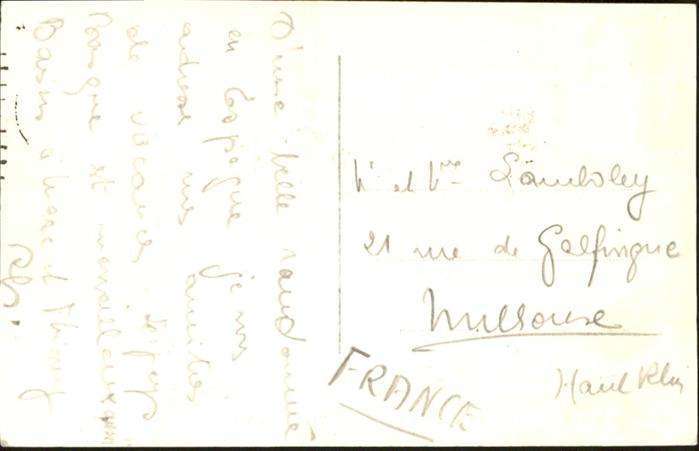 D'une belle randonnée
en Espagne je vous
adresse mes amitiés
de vacances. Le pays
Basque est merveilleux
Baisers à

Mr et Mme Lamboley
21 rue de Galfingue
Mulhouse
Haut Rhin
FRANCE